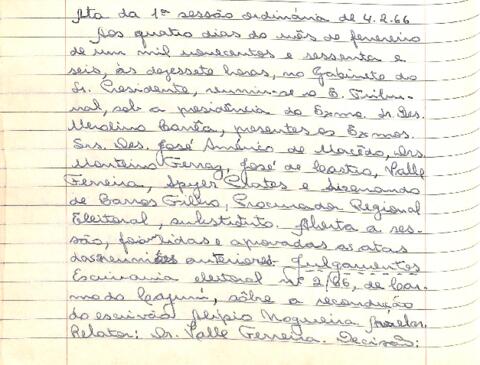 Ata da 1ª sessão ordinária de 4.2.66
Aos quatro dias do mês de fevereiro
de um mil novecentos e sessenta e
seis, às dezessete horas, no Gabinete do
Sr. Presidente, reuniu-se o E. Tribu-
nal, sob a presidência do Exmo. Sr. Des.
Merolino Corrêa, presentes os Exmos.
Srs. Des. José Américo de Macêdo, Drs.
Monteiro Ferraz, José de Castro, Valle
Ferreira, Spyer Prates e
de Barros Filho, Procurador Regional
Eleitoral, substituto. Aberta a ses-
são, foi lidas e aprovadas as atas
das reuniões anteriores. Julgamentos
Escrivania eleitoral nº 2/66, de Car-
mo do Cajuru, sôbre a recondução
do escrivão Alípio Nogueira
Relator: Dr. Valle Ferreira. Decisão: